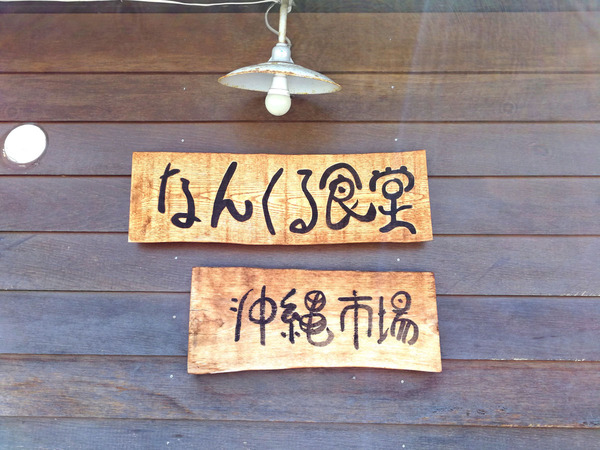 なんくる食堂
沖縄市場